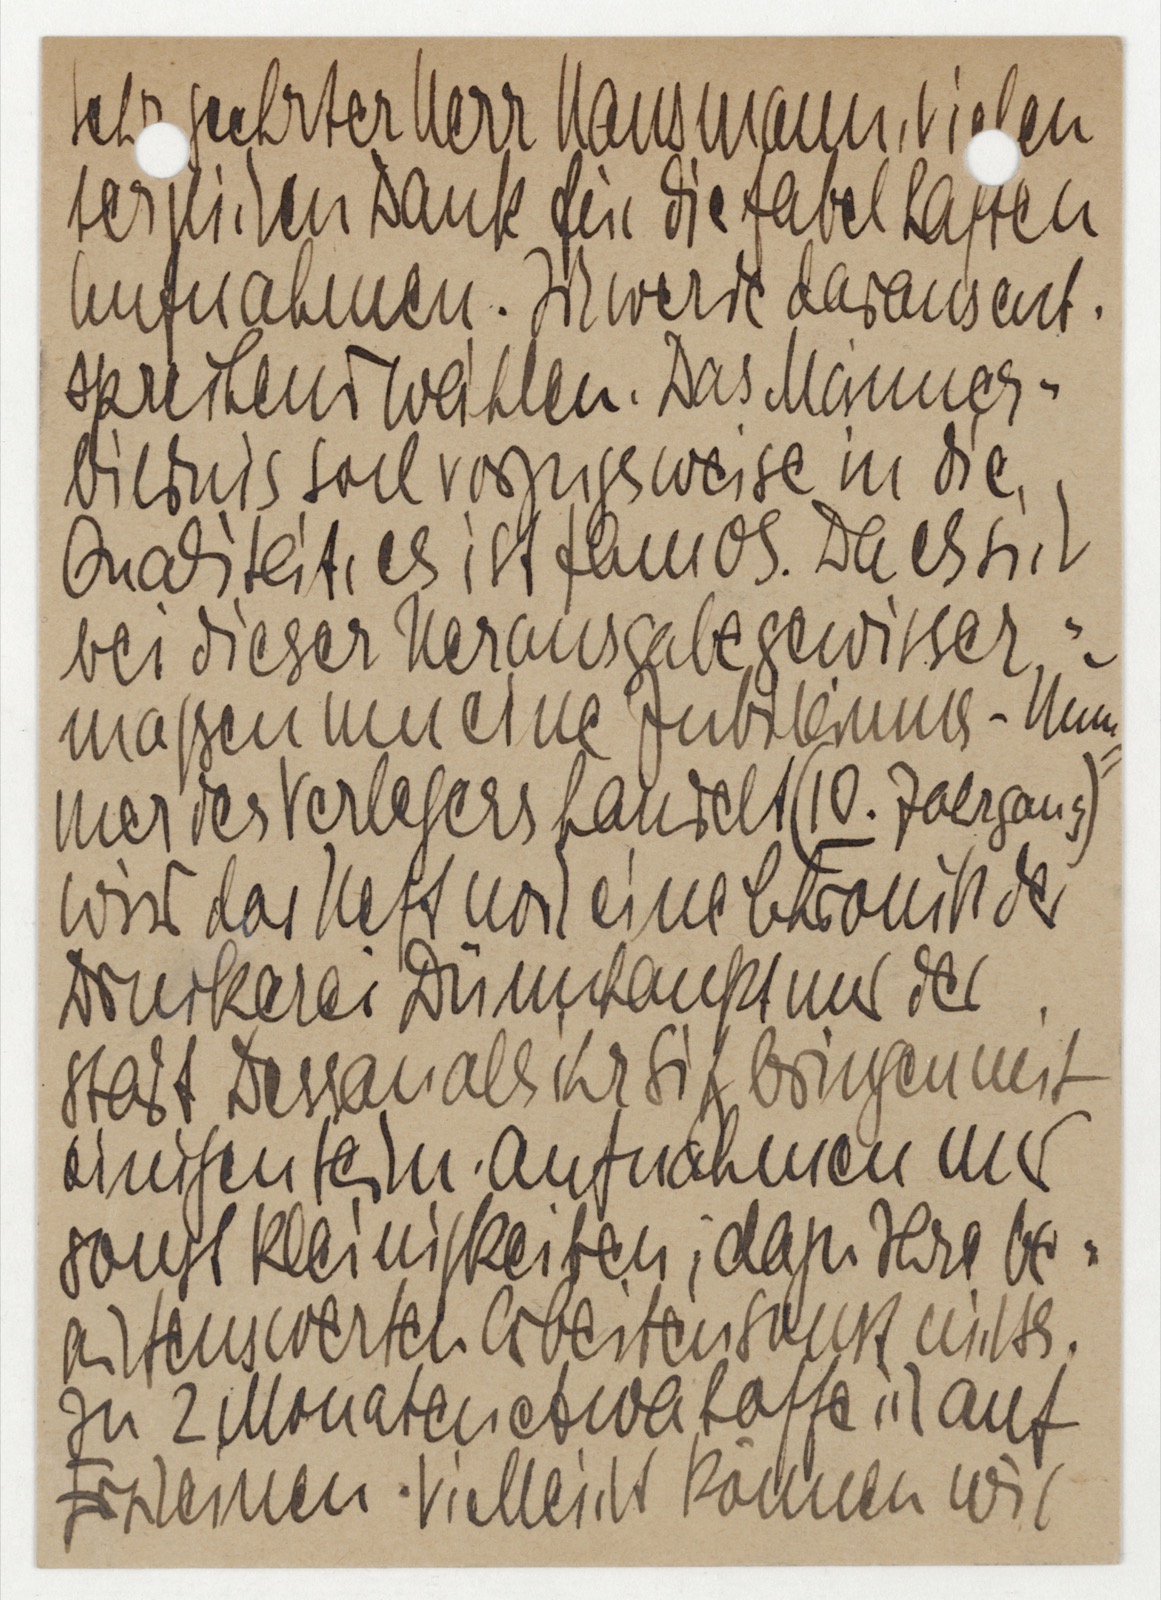 Sehr geehrter Herr Hausmann, vielen
herzlichen Dank für die fabelhaften
Aufnahmen. Ich werde daraus ent-
sprechend wählen. Das Männer-
bildnis soll vorzugsweise in die
Qualität, es ist famos. Da es sich
bei dieser Herausgabe gewisser-
maßen um eine Jubiläums-Num-
mer des Verlegers handelt (10. Jahrgang)
wird das Heft noch eine Chronik der
Druckerei Dünnhaupt und der
Stadt Dessau als ihr Sitz bringen mit
einigen techn. Aufnahmen und
sonst Kleinigkeiten; dazu Ihre be-
achtenswerten Arbeiten sonst nichts.
In 2 Monaten etwa hoffe ich auf
Erscheinen. Vielleicht können wir